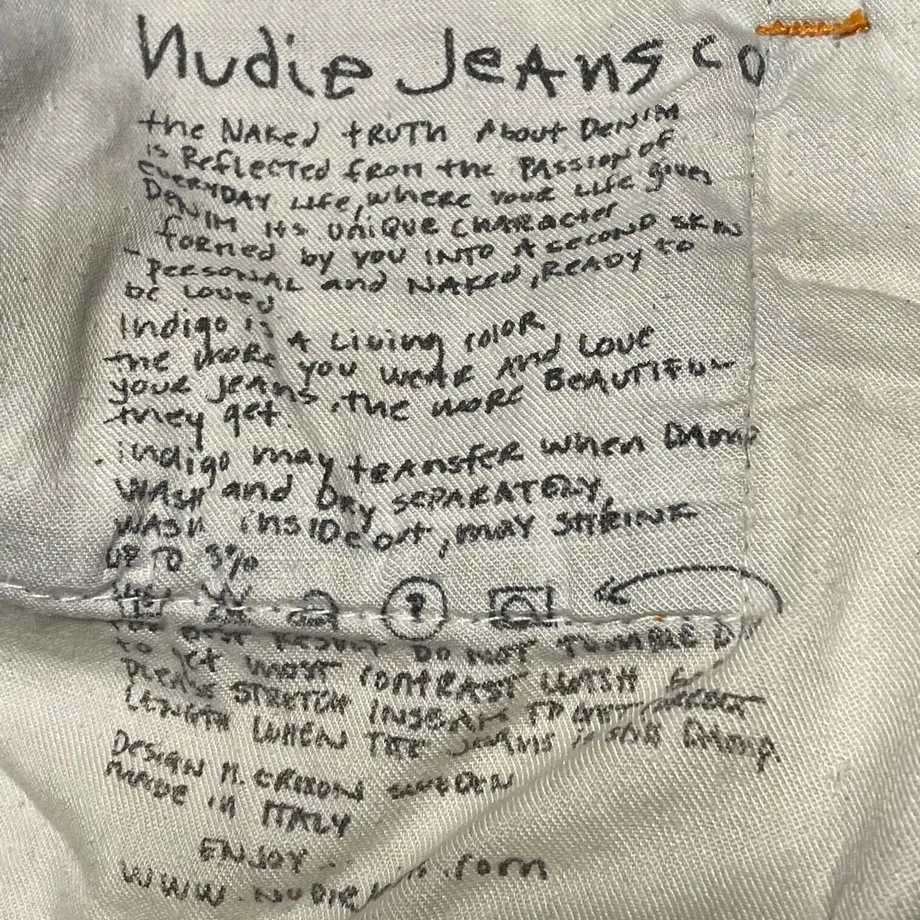 Nudie Jeans co
the NAKed tRUTH About DENIM
is Reflected from the PASSION of
EVERYDAY LIFE, where YOUR LIFE gives
DENIM its UNIQUE CHARACter
formed by YOU INTO A second SKIN
- PERSONAL and NAKED, READY to
be Loved
Indigo is A Living color
the more you WEAR and Love
your JEANS, the more BEAUTIFUL
they get.
indigo may tRANSfER when DAmp
WASH and DRY SEPARATELY,
WASH inSIDE out, may SHRINK
UP TO 3%
BEST RESULT DO NOT TUMBLE
to get most CONTRAST WASH
PLEASE STRETCH INSEAM TO GET
LENGTH WHEN THE JEANS DAMP
DESIGN M. ERIXON SWEDEN
MADE in ITALY
ENJOY..